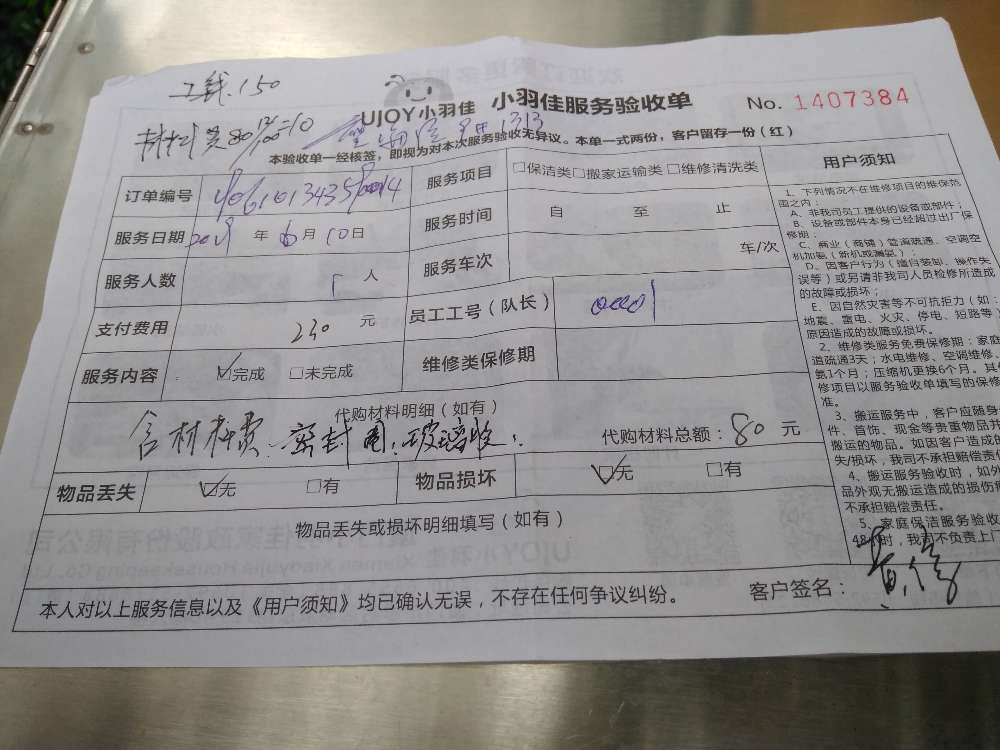 工钱.150
UJOY小羽佳 小羽佳服务验收单
No. 1407384
材料费80
1313
本验收单一经核签，即视为对本次服务验收无异议。本单一式两份，客户留存一份（红）
订单编号
服务项目 □保洁类□搬家运输类 □维修清洗类
服务日期 年 6月10日
服务时间 自 至 止
服务人数 1 人
服务车次 车/次
支付费用 230 元
员工工号（队长） 0001
服务内容 ☑完成 □未完成
维修类保修期
代购材料明细（如有）
含材料费.密封圈.玻璃胶.
代购材料总额：80 元
物品丢失 ☑无 □有
物品损坏 ☑无 □有
物品丢失或损坏明细填写（如有）
本人对以上服务信息以及《用户须知》均已确认无误，不存在任何争议纠纷。
客户签名：
用户须知
1、下列情况不在维修项目的维保范
围之内：
A、非我司员工提供的设备或部件；
B、设备或部件本身已经超过出厂保
修期；
C、商业（商铺）管道疏通、空调空
机加氨（新机或漏氨）；
D、因客户行为（擅自装卸、操作失
误等）或另请非我司人员检修所造成
的故障或损坏；
E、因自然灾害等不可抗拒力（如：
地震、雷电、火灾、停电、短路等）
原因造成的故障或损坏。
2、维修类服务免费保修期：家庭
道疏通3天；水电维修、空调维修、
氨1个月；压缩机更换6个月。其他
修项目以服务验收单填写的保修
准。
3、搬运服务中，客户应随身
件、首饰、现金等贵重物品并
搬运的物品。如因客户造成的
失/损坏，我司不承担赔偿责任
4、搬运服务验收时，如外
品外观无搬运造成的损伤
不承担赔偿责任。
5、家庭保洁服务验收
48 时，我司不负责上门